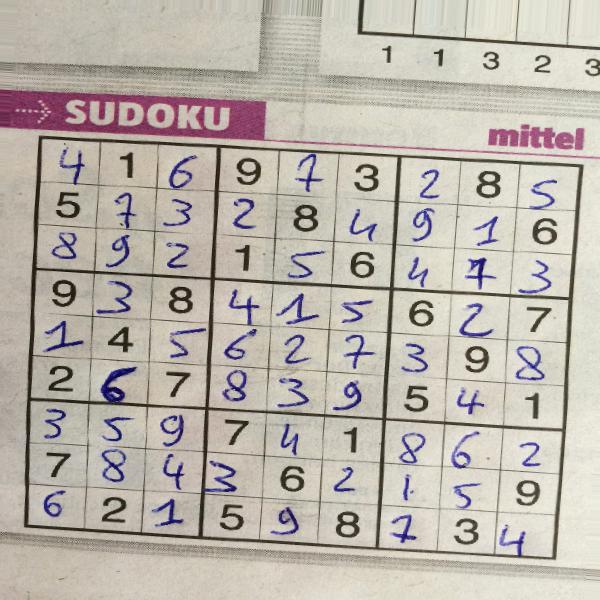 1 1 3 2 3
SUDOKU
mittel
4 1 6 9 7 3 2 8 5
5 7 3 2 8 4 9 1 6
8 9 2 1 5 6 4 7 3
9 3 8 4 1 5 6 2 7
1 4 5 6 2 7 3 9 8
2 6 7 8 3 9 5 4 1
3 5 9 7 4 1 8 6 2
7 8 4 3 6 2 1 5 9
6 2 1 5 9 8 7 3 4